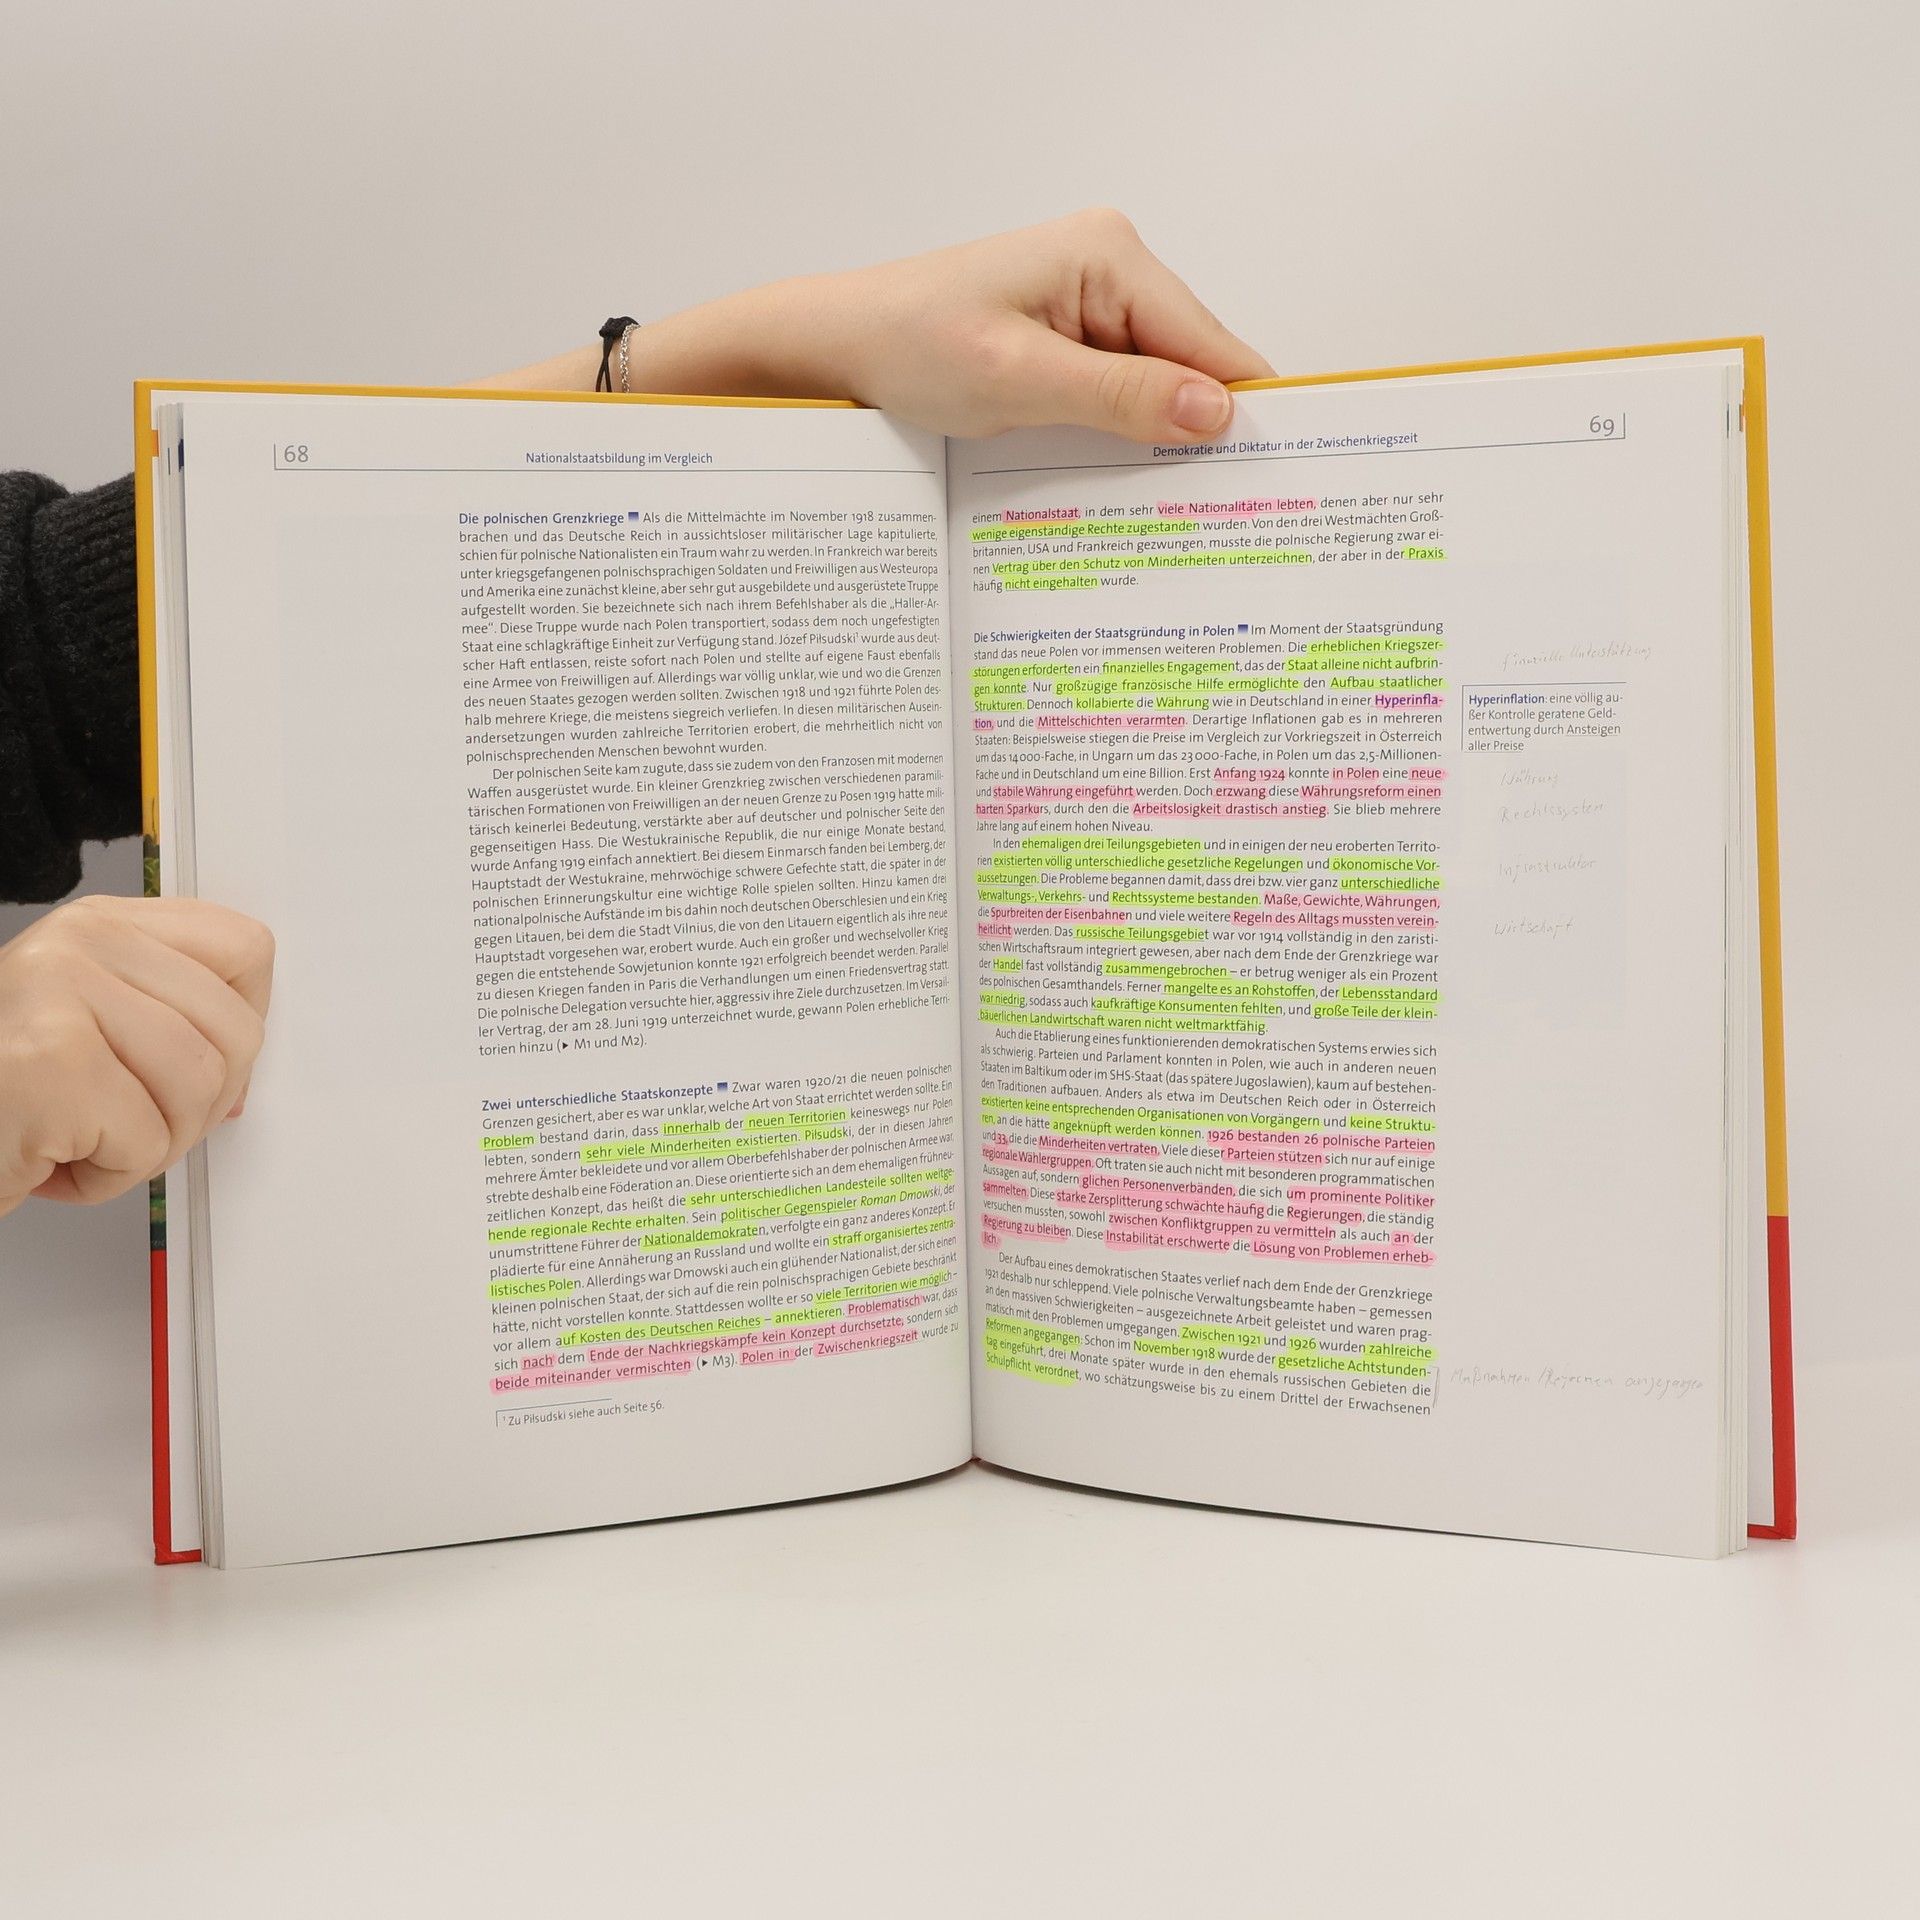 68
Nationalstaatsbildung im Vergleich
Die polnischen Grenzkriege Als die Mittelmächte im November 1918 zusammen-
brachen und das Deutsche Reich in aussichtsloser militärischer Lage kapitulierte,
schien für polnische Nationalisten ein Traum wahr zu werden. In Frankreich war bereits
unter kriegsgefangenen polnischsprachigen Soldaten und Freiwilligen aus Westeuropa
und Amerika eine zunächst kleine, aber sehr gut ausgebildete und ausgerüstete Truppe
aufgestellt worden. Sie bezeichnete sich nach ihrem Befehlshaber als die „Haller-Ar-
mee“. Diese Truppe wurde nach Polen transportiert, sodass dem noch ungefestigten
Staat eine schlagkräftige Einheit zur Verfügung stand. Józef Piłsudski¹ wurde aus deut-
scher Haft entlassen, reiste sofort nach Polen und stellte auf eigene Faust ebenfalls
eine Armee von Freiwilligen auf. Allerdings war völlig unklar, wie und wo die Grenzen
des neuen Staates gezogen werden sollten. Zwischen 1918 und 1921 führte Polen des-
halb mehrere Kriege, die meistens siegreich verliefen. In diesen militärischen Ausein-
andersetzungen wurden zahlreiche Territorien erobert, die mehrheitlich nicht von
polnischsprechenden Menschen bewohnt wurden.
Der polnischen Seite kam zugute, dass sie zudem von den Franzosen mit modernen
Waffen ausgerüstet wurde. Ein kleiner Grenzkrieg zwischen verschiedenen paramili-
tärischen Formationen von Freiwilligen an der neuen Grenze zu Posen 1919 hatte mili-
tärisch keinerlei Bedeutung, verstärkte aber auf deutscher und polnischer Seite den
gegenseitigen Hass. Die Westukrainische Republik, die nur einige Monate bestand,
wurde Anfang 1919 einfach annektiert. Bei diesem Einmarsch fanden bei Lemberg, der
Hauptstadt der Westukraine, mehrwöchige schwere Gefechte statt, die später in der
polnischen Erinnerungskultur eine wichtige Rolle spielen sollten. Hinzu kamen drei
nationalpolnische Aufstände im bis dahin noch deutschen Oberschlesien und ein Krieg
gegen Litauen, bei dem die Stadt Vilnius, die von den Litauern eigentlich als ihre neue
Hauptstadt vorgesehen war, erobert wurde. Auch ein großer und wechselvoller Krieg
gegen die entstehende Sowjetunion konnte 1921 erfolgreich beendet werden. Parallel
zu diesen Kriegen fanden in Paris die Verhandlungen um einen Friedensvertrag statt.
Die polnische Delegation versuchte hier, aggressiv ihre Ziele durchzusetzen. Im Versail-
ler Vertrag, der am 28. Juni 1919 unterzeichnet wurde, gewann Polen erhebliche Terri-
torien hinzu (▶ M1 und M2).
Zwei unterschiedliche Staatskonzepte Zwar waren 1920/21 die neuen polnischen
Grenzen gesichert, aber es war unklar, welche Art von Staat errichtet werden sollte. Ein
Problem bestand darin, dass innerhalb der neuen Territorien keineswegs nur Polen
lebten, sondern sehr viele Minderheiten existierten. Piłsudski, der in diesen Jahren
mehrere Ämter bekleidete und vor allem Oberbefehlshaber der polnischen Armee war,
strebte deshalb eine Föderation an. Diese orientierte sich an dem ehemaligen frühneu-
zeitlichen Konzept, das heißt die sehr unterschiedlichen Landesteile sollten weitge-
hende regionale Rechte erhalten. Sein politischer Gegenspieler Roman Dmowski, der
unumstrittene Führer der Nationaldemokraten, verfolgte ein ganz anderes Konzept. Er
plädierte für eine Annäherung an Russland und wollte ein straff organisiertes zentra-
listisches Polen. Allerdings war Dmowski auch ein glühender Nationalist, der sich einen
kleinen polnischen Staat, der sich auf die rein polnischsprachigen Gebiete beschränkt
hätte, nicht vorstellen konnte. Stattdessen wollte er so viele Territorien wie möglich –
vor allem auf Kosten des Deutschen Reiches – annektieren. Problematisch war, dass
sich nach dem Ende der Nachkriegskämpfe kein Konzept durchsetzte, sondern sich
beide miteinander vermischten (▶ M3). Polen in der Zwischenkriegszeit wurde zu
¹ Zu Piłsudski siehe auch Seite 56.
Demokratie und Diktatur in der Zwischenkriegszeit
69
einem Nationalstaat, in dem sehr viele Nationalitäten lebten, denen aber nur sehr
wenige eigenständige Rechte zugestanden wurden. Von den drei Westmächten Groß-
britannien, USA und Frankreich gezwungen, musste die polnische Regierung zwar ei-
nen Vertrag über den Schutz von Minderheiten unterzeichnen, der aber in der Praxis
häufig nicht eingehalten wurde.
Die Schwierigkeiten der Staatsgründung in Polen Im Moment der Staatsgründung
stand das neue Polen vor immensen weiteren Problemen. Die erheblichen Kriegszer-
störungen erforderten ein finanzielles Engagement, das der Staat alleine nicht aufbrin-
gen konnte. Nur großzügige französische Hilfe ermöglichte den Aufbau staatlicher
Strukturen. Dennoch kollabierte die Währung wie in Deutschland in einer Hyperinfla-
tion, und die Mittelschichten verarmten. Derartige Inflationen gab es in mehreren
Staaten: Beispielsweise stiegen die Preise im Vergleich zur Vorkriegszeit in Österreich
um das 14 000-Fache, in Ungarn um das 23 000-Fache, in Polen um das 2,5-Millionen-
Fache und in Deutschland um eine Billion. Erst Anfang 1924 konnte in Polen eine neue
und stabile Währung eingeführt werden. Doch erzwang diese Währungsreform einen
harten Sparkurs, durch den die Arbeitslosigkeit drastisch anstieg. Sie blieb mehrere
Jahre lang auf einem hohen Niveau.
In den ehemaligen drei Teilungsgebieten und in einigen der neu eroberten Territo-
rien existierten völlig unterschiedliche gesetzliche Regelungen und ökonomische Vor-
aussetzungen. Die Probleme begannen damit, dass drei bzw. vier ganz unterschiedliche
Verwaltungs-, Verkehrs- und Rechtssysteme bestanden. Maße, Gewichte, Währungen,
die Spurbreiten der Eisenbahnen und viele weitere Regeln des Alltags mussten verein-
heitlicht werden. Das russische Teilungsgebiet war vor 1914 vollständig in den zaristi-
schen Wirtschaftsraum integriert gewesen, aber nach dem Ende der Grenzkriege war
der Handel fast vollständig zusammengebrochen – er betrug weniger als ein Prozent
des polnischen Gesamthandels. Ferner mangelte es an Rohstoffen, der Lebensstandard
war niedrig, sodass auch kaufkräftige Konsumenten fehlten, und große Teile der klein-
bäuerlichen Landwirtschaft waren nicht weltmarktfähig.
Auch die Etablierung eines funktionierenden demokratischen Systems erwies sich
als schwierig. Parteien und Parlament konnten in Polen, wie auch in anderen neuen
Staaten im Baltikum oder im SHS-Staat (das spätere Jugoslawien), kaum auf bestehen-
den Traditionen aufbauen. Anders als etwa im Deutschen Reich oder in Österreich
existierten keine entsprechenden Organisationen von Vorgängern und keine Struktu-
ren, an die hätte angeknüpft werden können. 1926 bestanden 26 polnische Parteien
und 33, die die Minderheiten vertraten. Viele dieser Parteien stützen sich nur auf einige
regionale Wählergruppen. Oft traten sie auch nicht mit besonderen programmatischen
Aussagen auf, sondern glichen Personenverbänden, die sich um prominente Politiker
sammelten. Diese starke Zersplitterung schwächte häufig die Regierungen, die ständig
versuchen mussten, sowohl zwischen Konfliktgruppen zu vermitteln als auch an der
Regierung zu bleiben. Diese Instabilität erschwerte die Lösung von Problemen erheb-
lich.
Der Aufbau eines demokratischen Staates verlief nach dem Ende der Grenzkriege
1921 deshalb nur schleppend. Viele polnische Verwaltungsbeamte haben – gemessen
an den massiven Schwierigkeiten – ausgezeichnete Arbeit geleistet und waren prag-
matisch mit den Problemen umgegangen. Zwischen 1921 und 1926 wurden zahlreiche
Reformen angegangen: Schon im November 1918 wurde der gesetzliche Achtstunden-
tag eingeführt, drei Monate später wurde in den ehemals russischen Gebieten die
Schulpflicht verordnet, wo schätzungsweise bis zu einem Drittel der Erwachsenen
finanzielle Unterstützung
Hyperinflation: eine völlig au-
ßer Kontrolle geratene Geld-
entwertung durch Ansteigen
aller Preise
Währung
Rechtssystem
Infrastruktur
Wirtschaft
Maßnahmen / Reformen angegangen